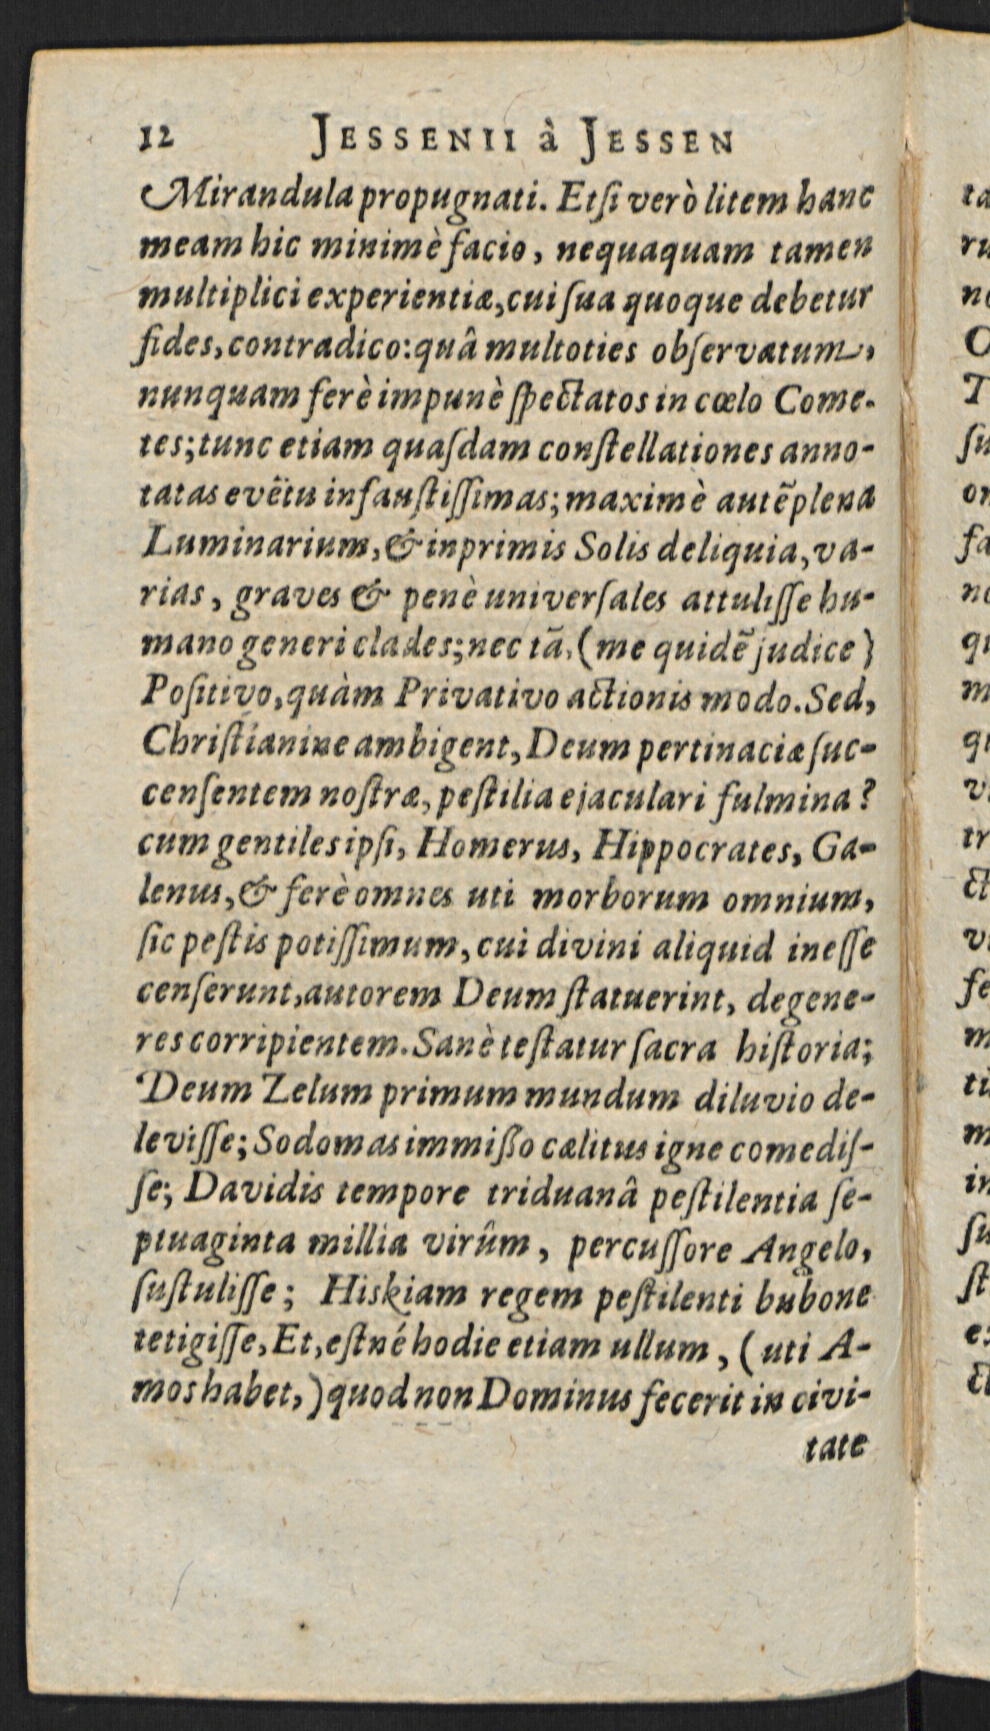 12 JESSENII à JESSEN
Mirandula propugnati. Etſi verò litem hanc
meam hic minimè facio, nequaquam tamen
multiplici experientiæ, cui ſua quoque debetur
fides, contradico: quâ multoties obſervatum,
nunquam ferè impunè ſpectatos in cœlo Come-
tes; tunc etiam quaſdam conſtellationes anno-
tatas evẽtu infauſtiſſimas; maximè autẽ plena
Luminarium, & inprimis Solis deliquia, va-
rias, graves & penè univerſales attuliſſe hu-
mano generi clades; nec tã, (me quidẽ judice)
Poſitivo, quàm Privativo actionis modo. Sed,
Chriſtianine ambigent, Deum pertinaciæ ſuc-
cenſentem noſtræ, peſtilia ejaculari fulmina?
cum gentiles ipſi, Homerus, Hippocrates, Ga-
lenus, & ferè omnes uti morborum omnium,
ſic peſtis potiſſimum, cui divini aliquid ineſſe
cenſerunt, autorem Deum ſtatuerint, degene-
res corripientem. Sanè teſtatur ſacra hiſtoria;
Deum Zelum primum mundum diluvio de-
leviſſe; Sodomas immißo cælitus igne comediſ-
ſe; Davidis tempore triduanâ peſtilentia ſe-
ptuaginta millia virûm, percuſſore Angelo,
ſuſtuliſſe; Hiskiam regem peſtilenti bubone
tetigiſſe, Et, eſtné hodie etiam ullum, (uti A-
mos habet,) quod non Dominus fecerit in civi-
tate